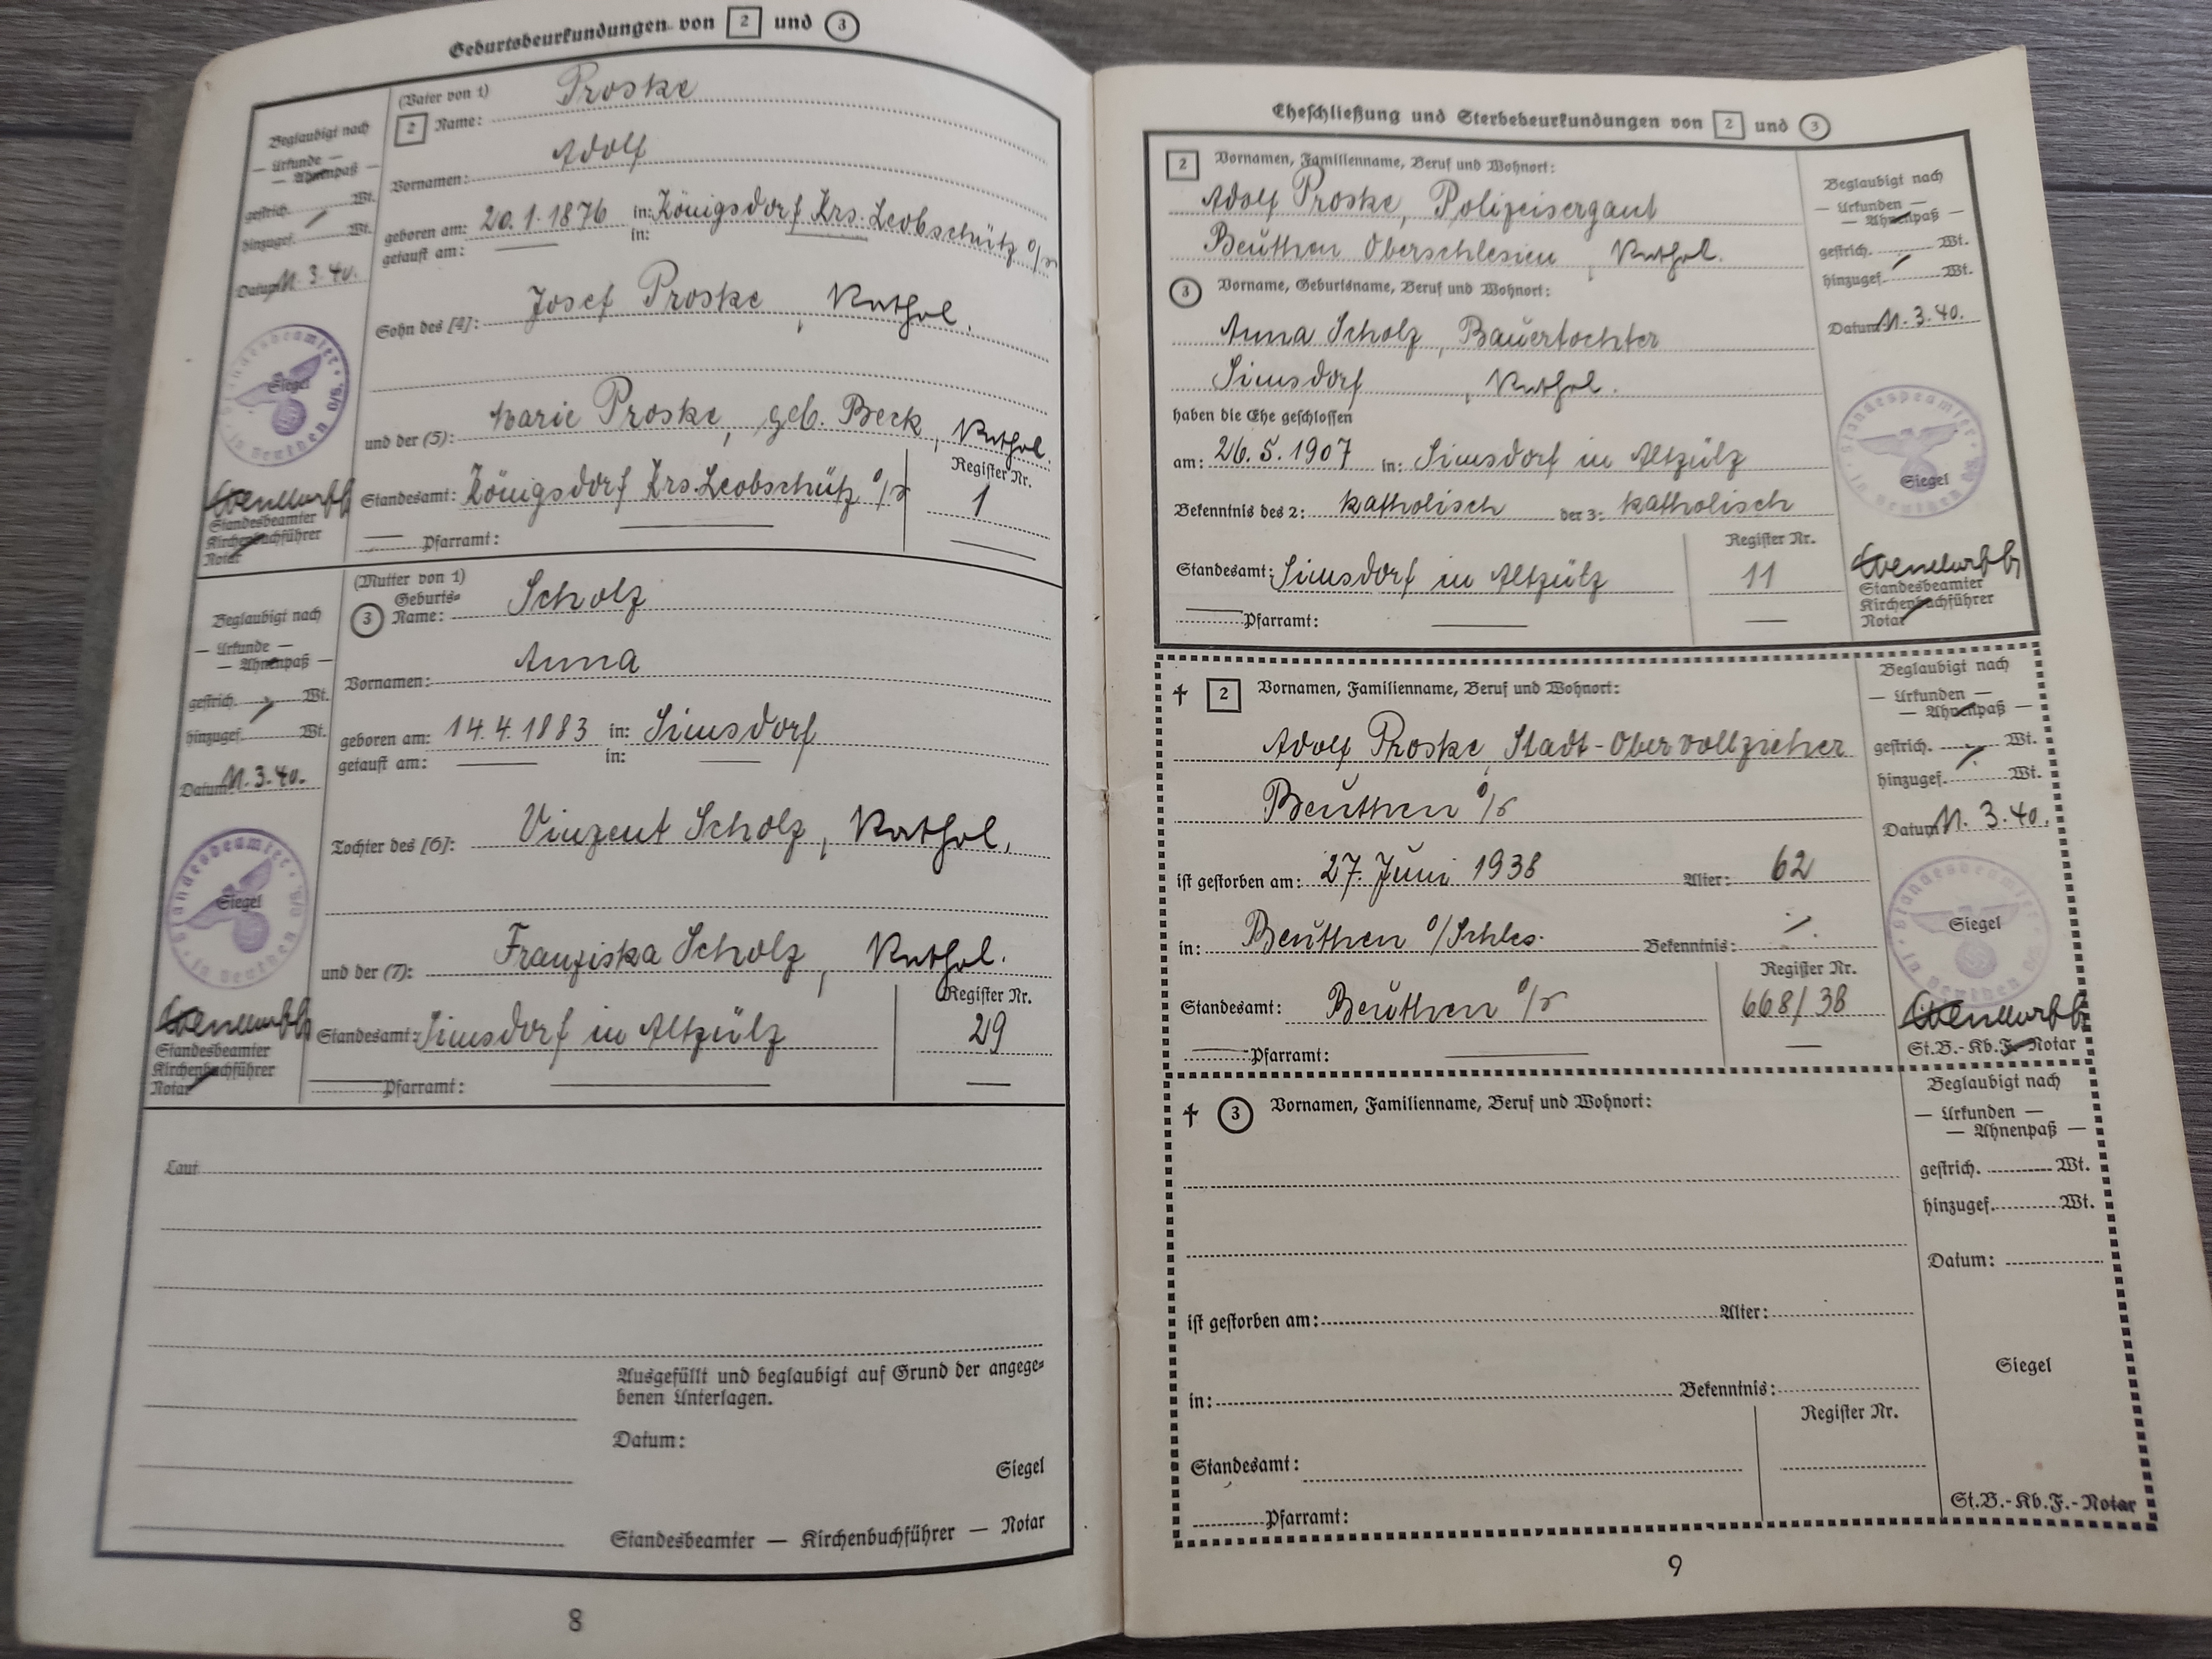 Geburtsbeurkundungen von 2 und 3
Beglaubigt nach
— Urkunde —
— Ahnenpaß —
gestrich. Wt.
hinzugef. Wt.
Datum 11.3.40.
Standesbeamter in Beuthen O/S
Siegel
Standesbeamter
Kirchenbuchführer
Notar
(Vater von 1)
2 Name: Proske
Vornamen: Adolf
geboren am: 20.1.1876 in: Königsdorf Krs. Leobschütz O/S
getauft am: — in:
Sohn des [4]: Josef Proske, Kathol.
und der (5): Marie Proske, geb. Beck, Kathol.
Standesamt: Königsdorf Krs. Leobschütz O/S
Register Nr.
1
— Pfarramt: —
Beglaubigt nach
— Urkunde —
— Ahnenpaß —
gestrich. Wt.
hinzugef. Wt.
Datum 11.3.40.
Standesbeamter in Beuthen O/S
Siegel
Standesbeamter
Kirchenbuchführer
Notar
(Mutter von 1)
Geburts-
3 Name: Scholz
Vornamen: Anna
geboren am: 14.4.1883 in: Simsdorf
getauft am: — in: —
Tochter des [6]: Vinzent Scholz, Kathol.
und der (7): Franziska Scholz, Kathol.
Standesamt: Simsdorf in Altzülz
Register Nr.
29
— Pfarramt: —
Laut
Ausgefüllt und beglaubigt auf Grund der angege-
benen Unterlagen.
Datum:
Siegel
Standesbeamter — Kirchenbuchführer — Notar
8
Eheschließung und Sterbebeurkundungen von 2 und 3
2 Vornamen, Familienname, Beruf und Wohnort:
Adolf Proske, Polizeisergant
Beuthen Oberschlesien, Kathol.
3 Vorname, Geburtsname, Beruf und Wohnort:
Anna Scholz, Bauertochter
Simsdorf, Kathol.
haben die Ehe geschlossen
am: 26.5.1907 in: Simsdorf in Altzülz
Bekenntnis des 2: katholisch der 3: katholisch
Standesamt: Simsdorf in Altzülz
Register Nr.
11
— Pfarramt: —
Beglaubigt nach
— Urkunden —
— Ahnenpaß —
gestrich. Wt.
hinzugef. Wt.
Datum 11.3.40.
Standesbeamter in Beuthen O/S
Siegel
Standesbeamter
Kirchenbuchführer
Notar
† 2 Vornamen, Familienname, Beruf und Wohnort:
Adolf Proske, Stadt-Obervollzieher
Beuthen O/S
ist gestorben am: 27. Juni 1938 Alter: 62
in: Beuthen O/Schles. Bekenntnis: ./.
Standesamt: Beuthen O/S
Register Nr.
668/38
— Pfarramt: —
Beglaubigt nach
— Urkunden —
— Ahnenpaß —
gestrich. Wt.
hinzugef. Wt.
Datum 11.3.40.
Standesbeamter in Beuthen O/S
Siegel
St.B.-Kb.F.-Notar
† 3 Vornamen, Familienname, Beruf und Wohnort:
ist gestorben am: Alter:
in: Bekenntnis:
Standesamt:
Register Nr.
Pfarramt:
Beglaubigt nach
— Urkunden —
— Ahnenpaß —
gestrich. Wt.
hinzugef. Wt.
Datum:
Siegel
St.B.-Kb.F.-Notar
9